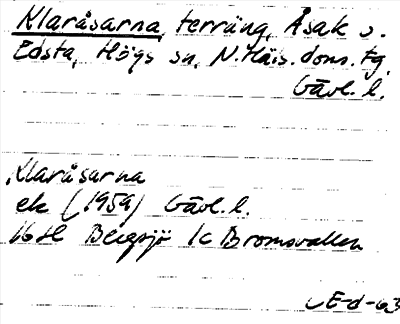 Klaråsarna, terräng, Åsak o.
Edsta, Högs sn, N. Häls. doms. tg,
Gävl. l.
Klaråsarna
ek (1959) Gävl. l.
16H Bergsjö 1c Bromsvallen
E-d-63